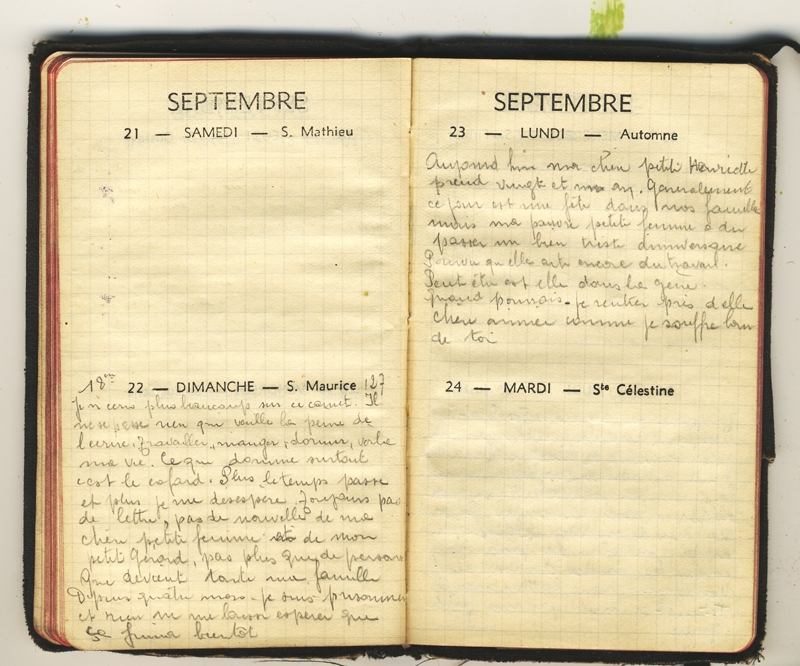 SEPTEMBRE
21 — SAMEDI — S. Mathieu
18ème 22 — DIMANCHE — S. Maurice 127
Je n'ecris plus beaucoup sur ce carnet. Il
ne se passe rien qui vaille la peine de
l'ecrire. Travailler, manger, dormir, voila
ma vie. Ce qui domine surtout
c'est le cafard. Plus le temps passe
et plus je me desespère. Toujours pas
de lettre, pas de nouvelle de ma
chère petite femme de mon
petit Gérard, pas plus que de personne
Que devient toute ma famille
Depuis quatre mois je suis prisonnier
et rien ne me laisse esperer que
ça finira bientôt
SEPTEMBRE
23 — LUNDI — Automne
Aujourd'hui ma chère petite Henriette
prend vingt et un an. Generalement
ce jour est une fête dans nos famille
mais ma pauvre petite femme a du
passer un bien triste anniversaire
Pourvu qu'elle ait encore du travail.
Peut être est elle dans la gène.
Quand pourrais-je rentrer près d'elle
Chère aimée comme je souffre loin
de toi
24 — MARDI — Ste Célestine